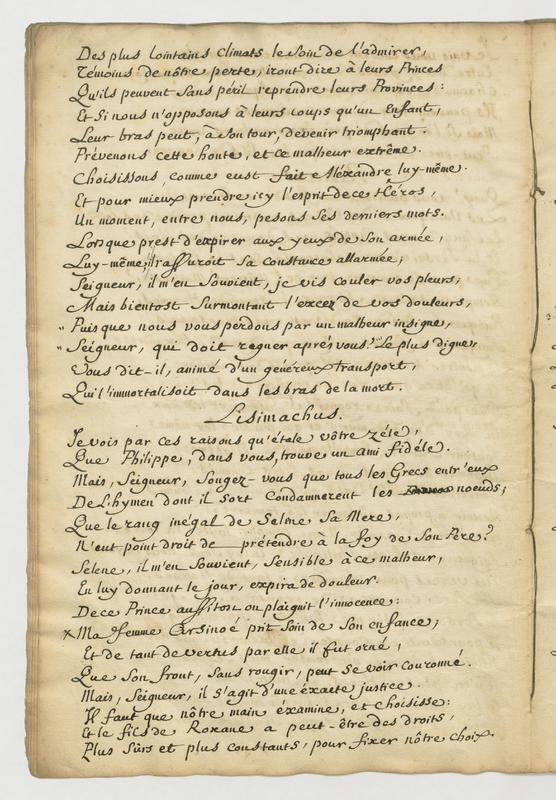 Des plus lointains climats le soin de l'admirer,
Témoins de nôtre perte, iront dire à leurs Princes
Qu'ils peuvent sans péril reprendre leurs Provinces:
Et si nous n'opposons à leurs coups qu'un Enfant,
Leur bras peut, à son tour, devenir triomphant.
Prévenons cette honte, et ce malheur extrême.
Choisissons, comme eust fait Aléxandre luy-même.
Et pour mieux prendre icy l'esprit de ce Héros,
Un moment, entre nous, pesons ses derniers mots.
Lorsque prest d'expirer aux yeux de son armée,
Luy-même, il rassuroit sa constance allarmée,
Seigneur, il m'en souvient, je vis couler vos pleurs,
Mais bientost surmontant l'excez de vos douleurs,
" Puis que nous vous perdons par un malheur insigne,
" Seigneur, qui doit regner aprés vous? "Le plus digne,
Vous dit-il, animé d'un généreux transport,
Qui l'immortalisoit dans les bras de la mort.
Lisimachus.
Je vois par ces raisons qu'étale vôtre zéle,
Que Philippe, dans vous, trouve un ami fidéle.
Mais, Seigneur, songez-vous que tous les Grecs entr'eux
De L'hymen dont il sort condamnerent les noeuds;
Que le rang inégal de Seléne sa Mere,
N'eut point droit de prétendre à la foy de son Pére?
Seléne, il m'en souvient, sensible à ce malheur,
En luy donnant le jour, expira de douleur.
De ce Prince aussitost on plaignit l'innocence:
x Ma femme Arsinoé prit soin de son enfance;
Et de tant de vertus par elle il fut orné,
Que son front, sans rougir, peut se voir couronné.
Mais, Seigneur, il s'agit d'une éxacte justice.
Il faut que nôtre main éxamine, et choisisse:
Et le fils de Roxane a peut-être des droits,
Plus sûrs et plus constants, pour fixer nôtre choix.